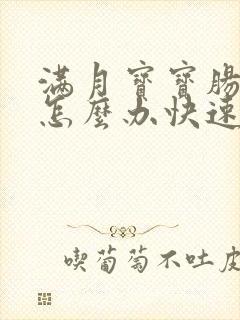 滿月寶寶腸
怎麼办快速
喫葡萄不吐皮